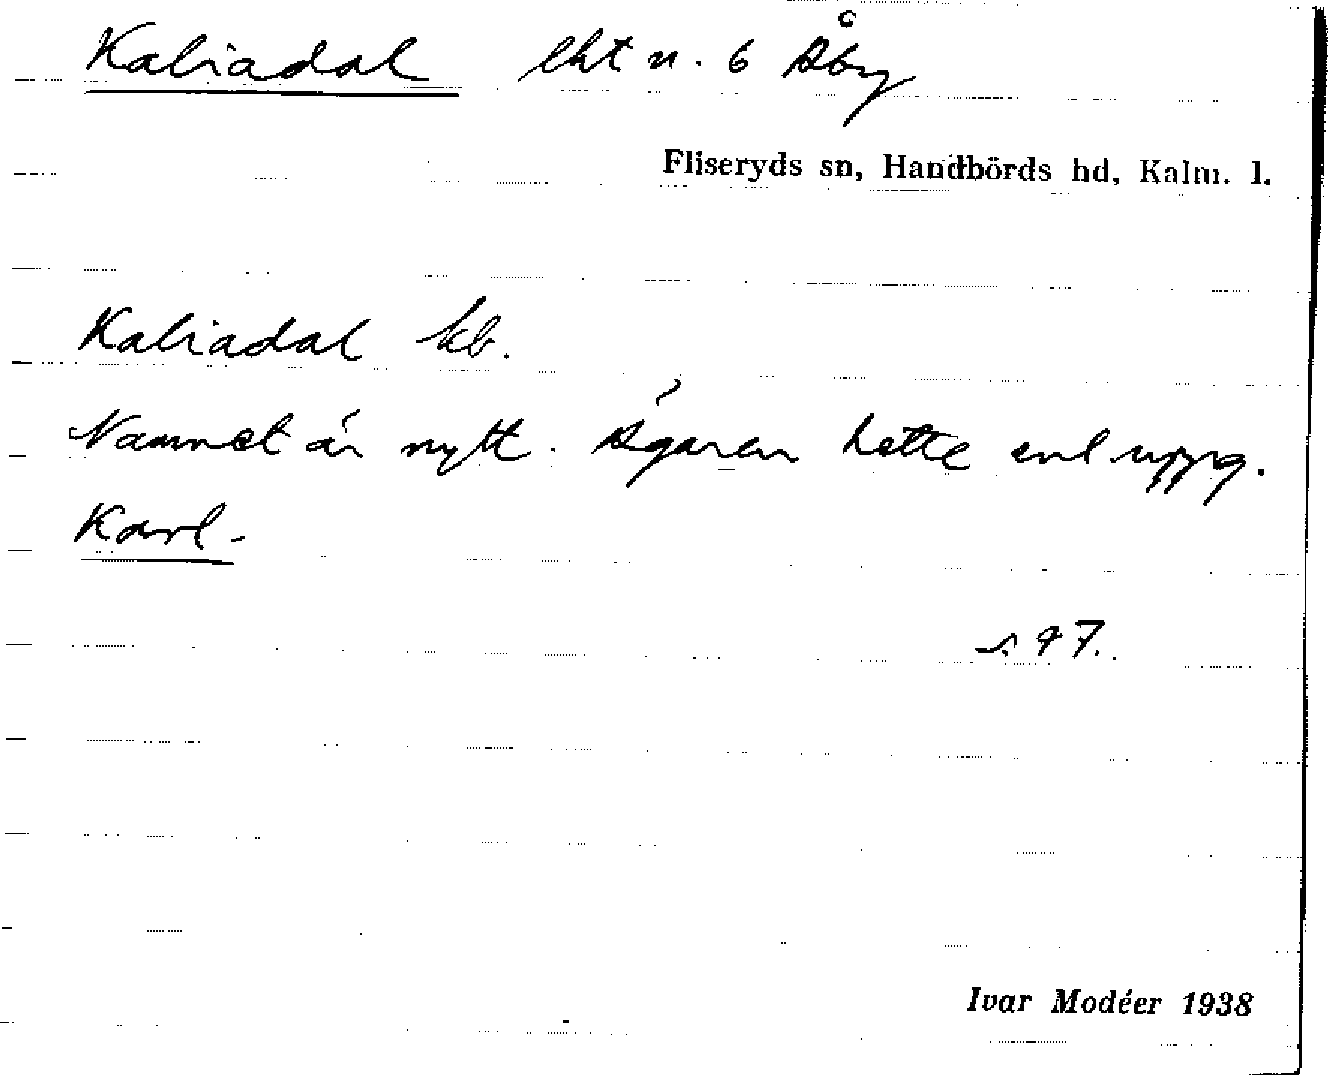 Kaliadal lht u. 6 Åby
Fliseryds sn, Handbörds hd, Kalm. l.
Kaliadal kb.
Namnet är nytt. Ägaren hette enl. uppg.
Karl.
s. 97.
Ivar Modéer 1938